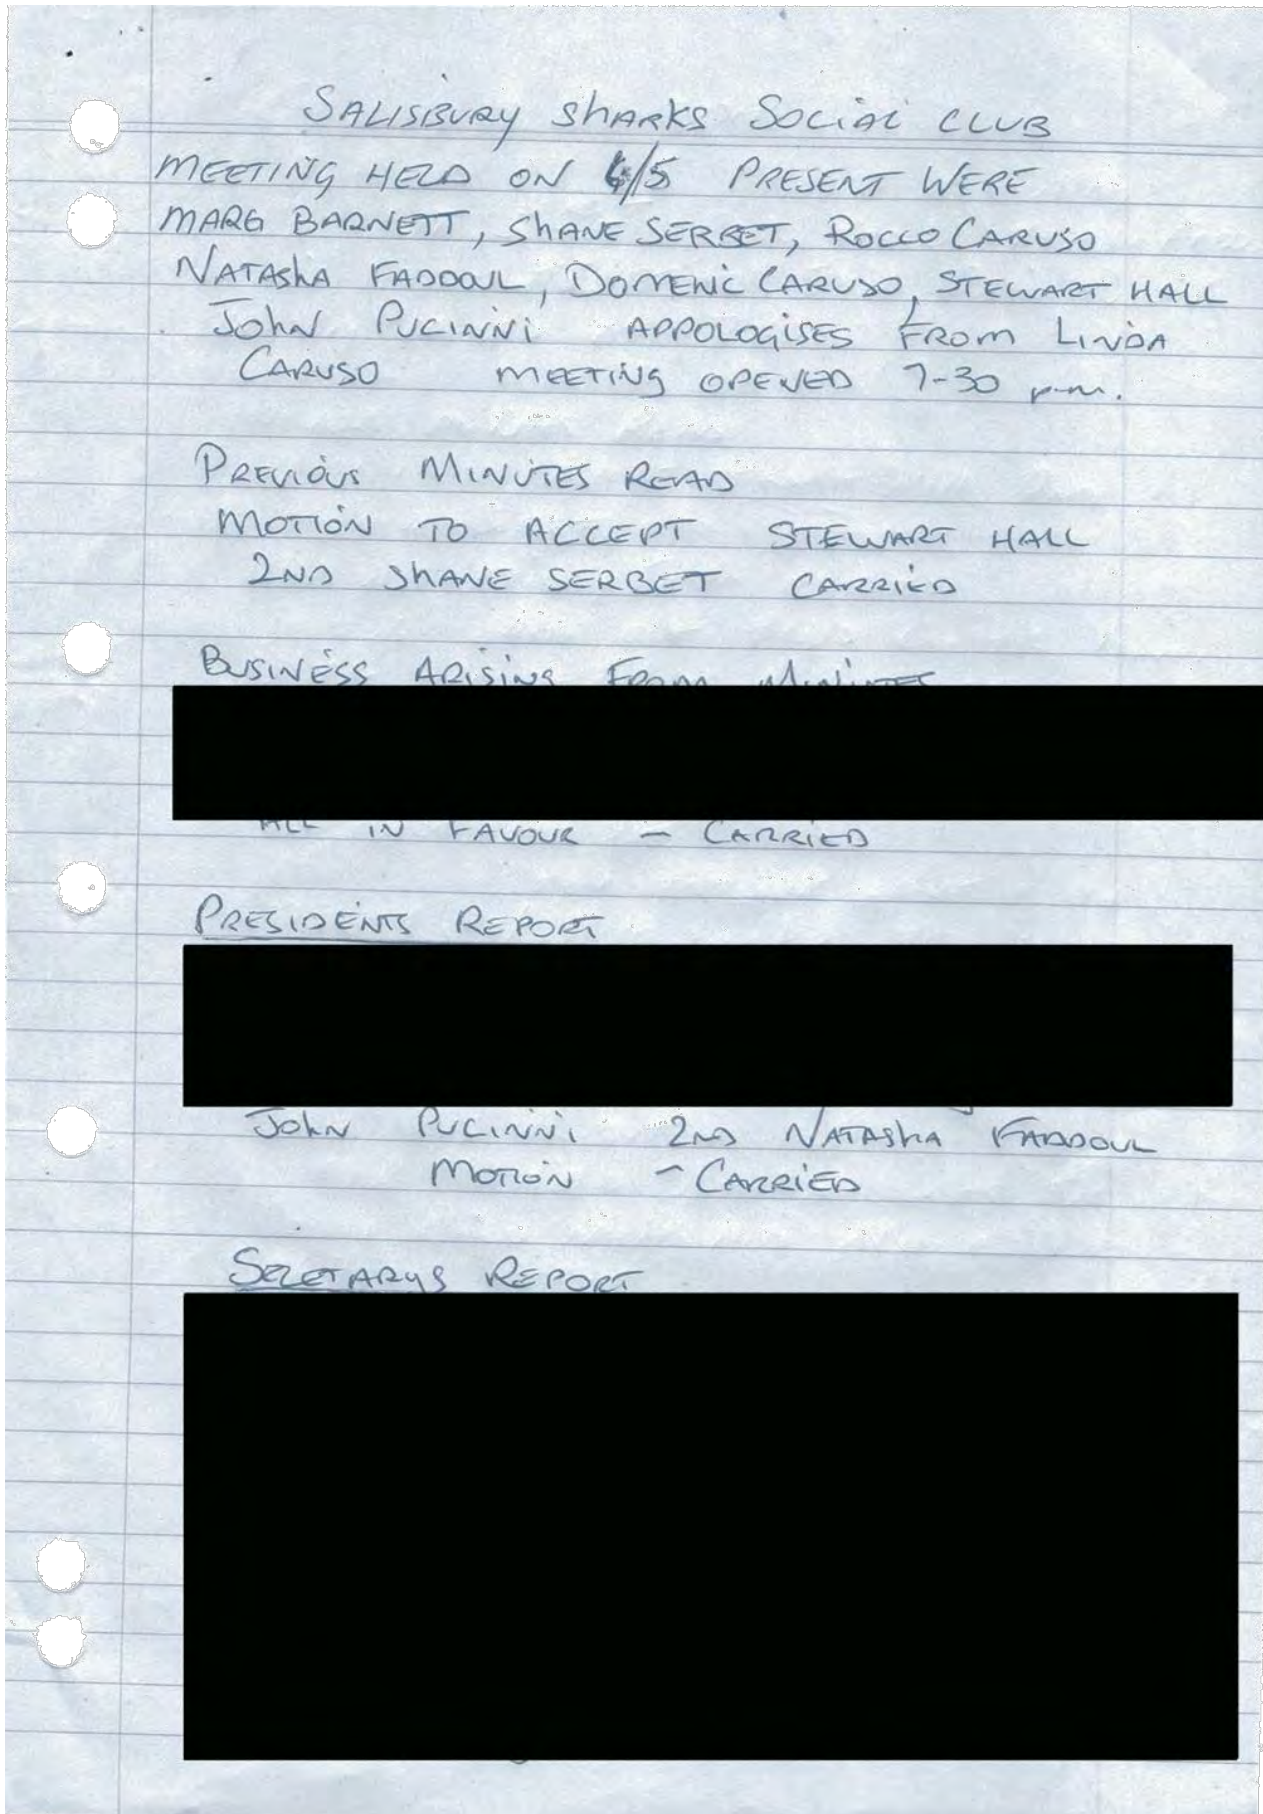 SALISBURY SHARKS SOCIAL CLUB
MEETING HELD ON 6/5 PRESENT WERE
MARG BARNETT, SHANE SERBET, ROCCO CARUSO
NATASHA FADDOUL, DOMENIC CARUSO, STEWART HALL
JOHN PUCINNI APPOLOGISES FROM LINDA
CARUSO MEETING OPENED 7-30 p.m.
PREVIOUS MINUTES READ
MOTION TO ACCEPT STEWART HALL
2ND SHANE SERBET CARRIED
BUSINESS ARISING FROM MINUTES
ALL IN FAVOUR - CARRIED
PRESIDENTS REPORT
JOHN PUCINNI 2ND NATASHA FADDOUL
MOTION - CARRIED
SECRETARYS REPORT